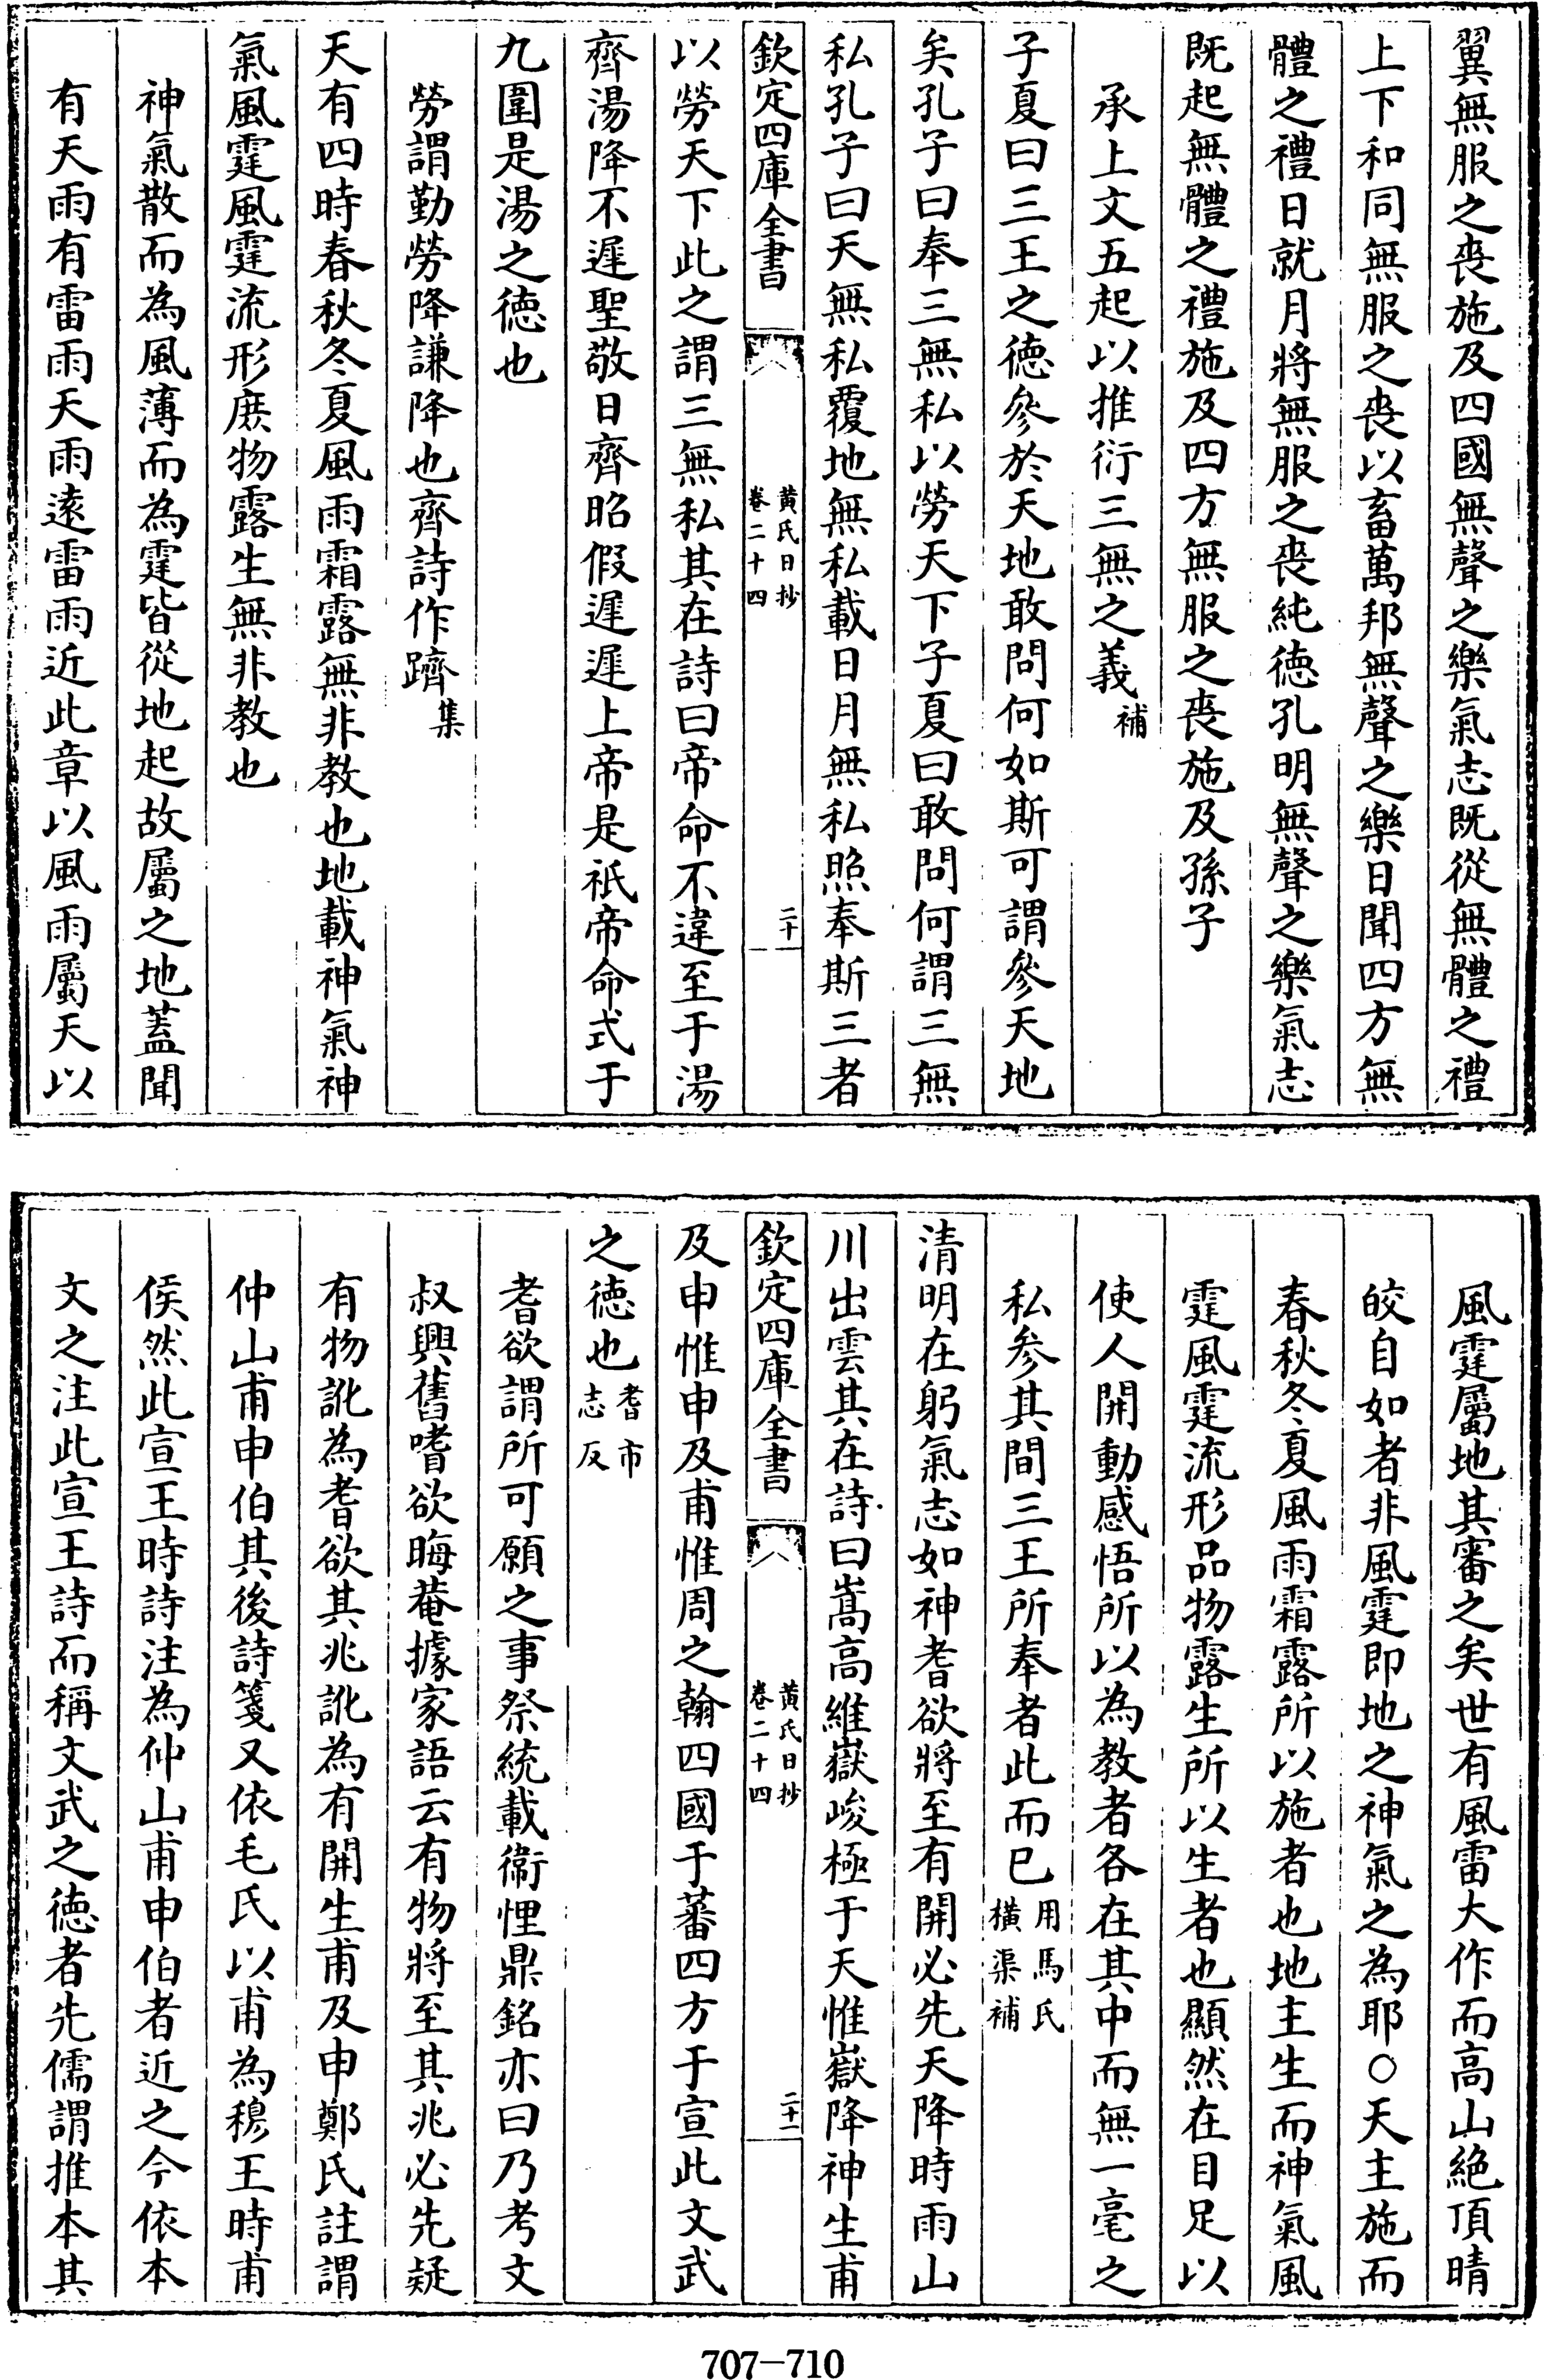 翼無服之喪施及四國無聲之樂氣志既從無體之禮
上下和同無服之喪以畜萬邦無聲之樂日聞四方無
體之禮日就月將無服之喪純徳孔明無聲之樂氣志
既起無體之禮施及四方無服之喪施及孫子
承上文五起以推衍三無之義補
子夏曰三王之徳參於天地敢問何如斯可謂參天地
矣孔子曰奉三無私以勞天下子夏曰敢問何謂三無
私孔子曰天無私覆地無私載日月無私照奉斯三者
欽定四庫全書
黄氏日抄
卷二十四
二十
以勞天下此之謂三無私其在詩曰帝命不違至于湯
齊湯降不遲聖敬日齊昭假遲遲上帝是祇帝命式于
九圍是湯之徳也
勞謂勤勞降謙降也齊詩作躋集
天有四時春秋冬夏風雨霜露無非教也地載神氣神
氣風霆風霆流形庶物露生無非教也
神氣散而為風薄而為霆皆從地起故屬之地蓋聞
有天雨有雷雨天雨逺雷雨近此章以風雨屬天以
風霆屬地其審之矣世有風雷大作而高山絶頂晴
皎自如者非風霆即地之神氣之為耶○天主施而
春秋冬夏風雨霜露所以施者也地主生而神氣風
霆風霆流形品物露生所以生者也顯然在目足以
使人開動感悟所以為教者各在其中而無一毫之
私參其間三王所奉者此而已用馬氏
橫渠補
清明在躬氣志如神耆欲將至有開必先天降時雨山
川出雲其在詩曰嵩高維嶽峻極于天惟嶽降神生甫
欽定四庫全書
黄氏日抄
卷二十四
二十一
及申惟申及甫惟周之翰四國于蕃四方于宣此文武
之徳也耆市
志反
耆欲謂所可願之事祭統載衞悝鼎銘亦曰乃考文
叔興舊嗜欲晦菴據家語云有物將至其兆必先疑
有物訛為耆欲其兆訛為有開生甫及申鄭氏註謂
仲山甫申伯其後詩箋又依毛氏以甫為穆王時甫
侯然此宣王時詩注為仲山甫申伯者近之今依本
文之注此宣王詩而稱文武之徳者先儒謂推本其
707-710